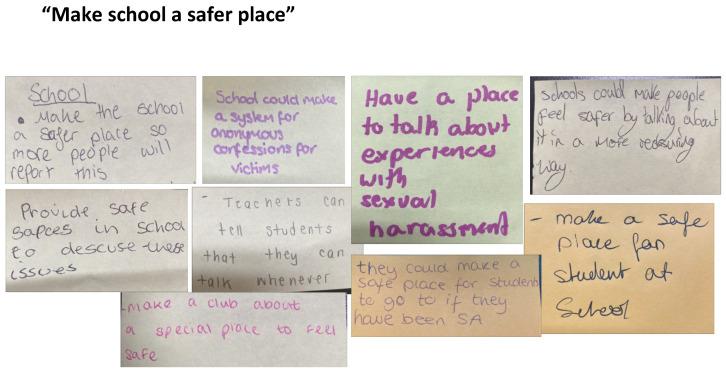 “Make school a safer place”
School
• Make the school
a safer place so
more people will
report this
School could make
a system for
anonymous
confessions for
victims
Have a place
to talk about
experiences
with
sexual
harassment
Schools could make people
feel safer by talking about
it in a more reasuring
way.
Provide safe
sapces in school
to descuse these
issues
- Teachers can
tell students
that they can
talk whenever
they could make a
safe place for students
to go to if they
have been SA
- make a safe
place for
student at
School
make a club about
a special place to feel
safe